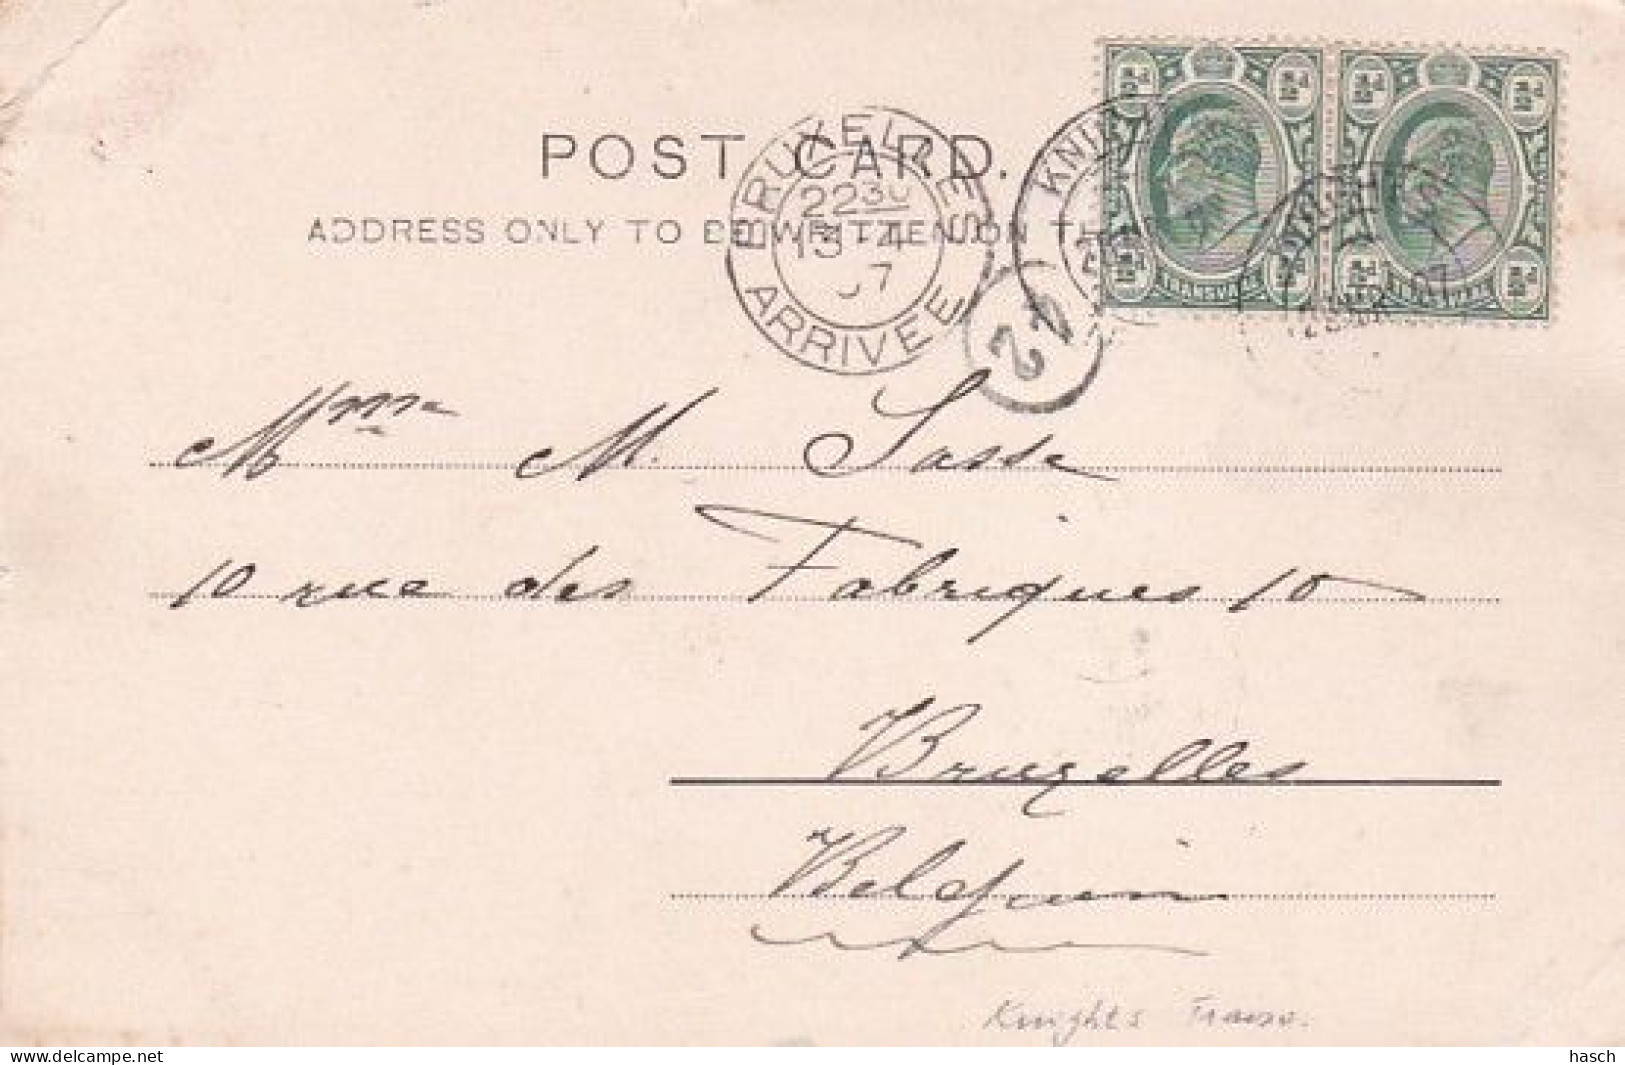 POST CARD.
ADDRESS ONLY TO BE WRITTEN ON TH
BRUXELLES
22 30
13-4
07
ARRIVEE
KNIGH
22 MAR 07
42
Mme M. Sasse
10 rue des Fabriques 10
Bruxelles
Belgium
Knights Transv.
www.delcampe.net
hasch